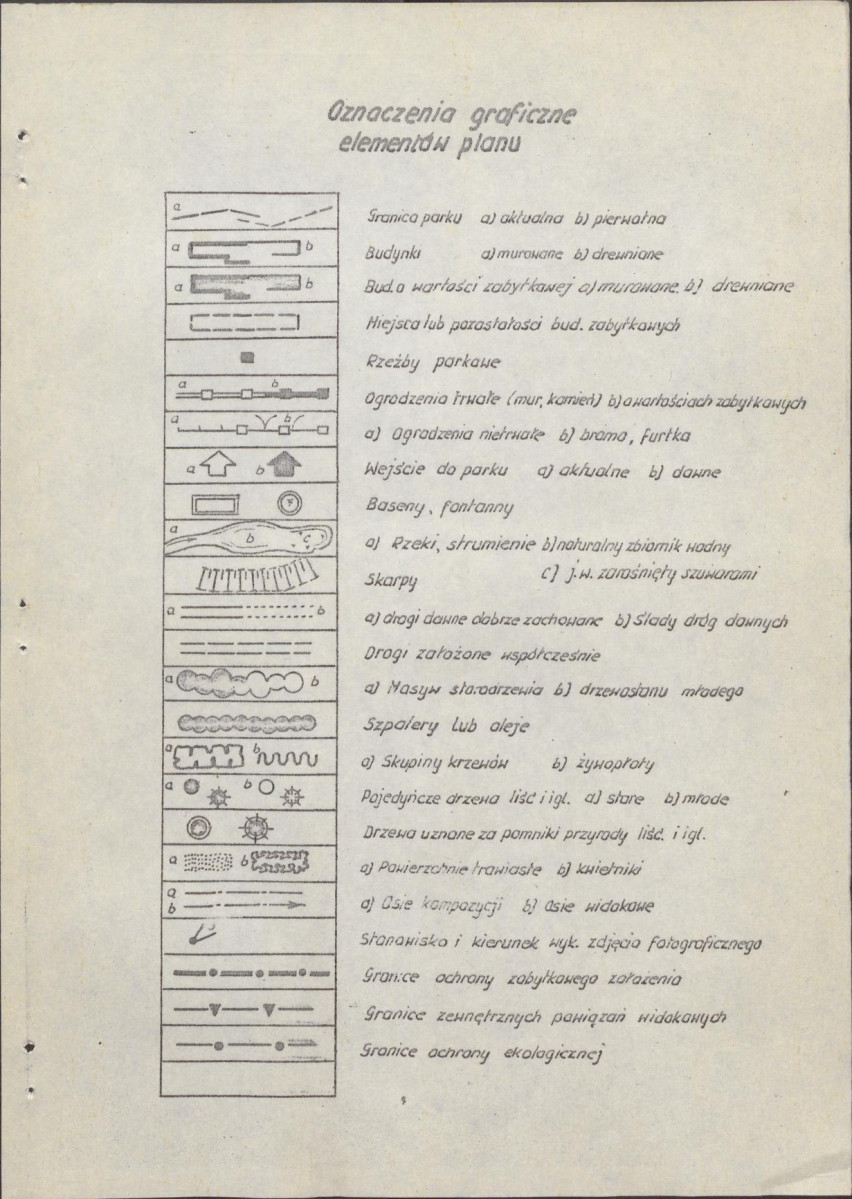 Oznaczenia graficzne
elementów planu
a
Granica parku a) aktualna b) pierwotna
a b
Budynki a) murowane b) drewniane
a b
Bud. o wartości zabytkowej a) murowane. b) drewniane
Miejsca lub pozostałości bud. zabytkowych
Rzeźby parkowe
a b
Ogrodzenia trwałe (mur, kamień) b) o wartościach zabytkowych
a b
a) Ogrodzenia nietrwałe b) brama, furtka
a b
Wejście do parku a) aktualne b) dawne
F
Baseny, fontanny
a b c
a) Rzeki, strumienie b) naturalny zbiornik wodny
c) j.w. zarośnięty szuwarami
Skarpy
a b
a) drogi dawne dobrze zachowane b) Ślady dróg dawnych
Drogi założone współcześnie
a b
a) Masyw starodrzewia b) drzewostanu młodego
Szpalery lub aleje
a b
a) Skupiny krzewów b) żywopłoty
a b
Pojedyńcze drzewa liść i igl. a) stare b) młode
Drzewa uznane za pomniki przyrody liść. i igl.
a b
a) Powierzchnie trawiaste b) kwietniki
a
b
a) Osie kompozycji b) Osie widokowe
Stanowisko i kierunek wyk. zdjęcia fotograficznego
Granice ochrony zabytkowego założenia
Granice zewnętrznych powiązań widokowych
Granice ochrony ekologicznej